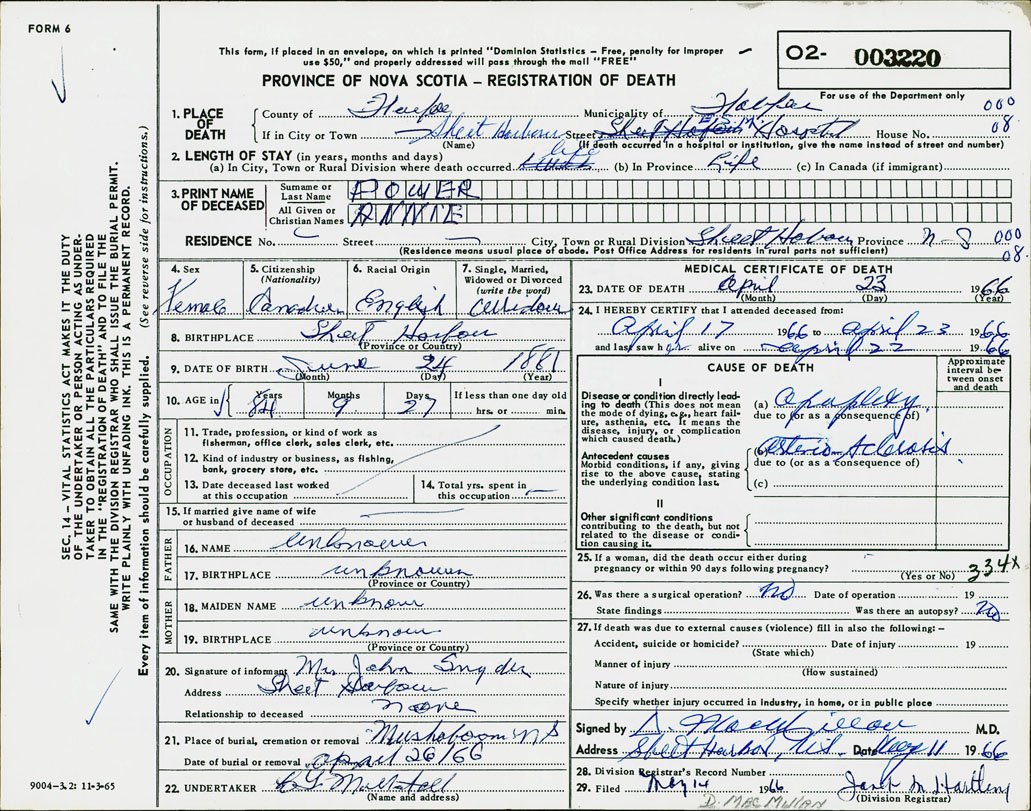 FORM 6
This form, if placed in an envelope, on which is printed "Dominion Statistics – Free, penalty for improper
use $50," and properly addressed will pass through the mail "FREE"
O2- 003220
PROVINCE OF NOVA SCOTIA – REGISTRATION OF DEATH
For use of the Department only
1. PLACE OF DEATH
County of Halifax Municipality of Halifax 000
If in City or Town Sheet Harbour Street Hospital House No. 08.
(Name) (If death occurred in a hospital or institution, give the name instead of street and number)
2. LENGTH OF STAY (in years, months and days)
(a) In City, Town or Rural Division where death occurred life (b) In Province Life (c) In Canada (if immigrant)
3. PRINT NAME OF DECEASED
Surname or Last Name POWER
All Given or Christian Names ANNIE
RESIDENCE No. Street City, Town or Rural Division Sheet Harbour Province N-S 000
(Residence means usual place of abode. Post Office Address for residents in rural parts not sufficient) 08.
4. Sex Female
5. Citizenship (Nationality) Canadian
6. Racial Origin English
7. Single, Married, Widowed or Divorced (write the word) Widow
8. BIRTHPLACE Sheet Harbour
(Province or Country)
9. DATE OF BIRTH June 24 1881
(Month) (Day) (Year)
10. AGE in Years 84 Months 9 Days 27 If less than one day old
hrs. or min.
OCCUPATION
11. Trade, profession, or kind of work as
fisherman, office clerk, sales clerk, etc.
12. Kind of industry or business, as fishing,
bank, grocery store, etc.
13. Date deceased last worked
at this occupation
14. Total yrs. spent in
this occupation
15. If married give name of wife
or husband of deceased
FATHER
16. NAME unknown
17. BIRTHPLACE unknown
(Province or Country)
MOTHER
18. MAIDEN NAME unknown
19. BIRTHPLACE unknown
(Province or Country)
20. Signature of informant Mrs John Snyder
Address Sheet Harbour
Relationship to deceased none
21. Place of burial, cremation or removal Mushaboom N S
Date of burial or removal april 26/66
22. UNDERTAKER
(Name and address)
MEDICAL CERTIFICATE OF DEATH
23. DATE OF DEATH April 23 1966
(Month) (Day) (Year)
24. I HEREBY CERTIFY that I attended deceased from:
April 17 1966 to april 23 1966
and last saw her alive on april 22 1966
CAUSE OF DEATH
Approximate interval between onset and death
I
Disease or condition directly leading to death (This does not mean the mode of dying, e.g., heart failure, asthenia, etc. It means the disease, injury, or complication which caused death.)
(a) apoplexy
due to (or as a consequence of)
Antecedent causes
Morbid conditions, if any, giving rise to the above cause, stating the underlying condition last.
(b) arterio-sclerosis
due to (or as a consequence of)
(c)
II
Other significant conditions
contributing to the death, but not related to the disease or condition causing it.
25. If a woman, did the death occur either during
pregnancy or within 90 days following pregnancy?
(Yes or No) 334X
26. Was there a surgical operation? no Date of operation 19
State findings Was there an autopsy? No
27. If death was due to external causes (violence) fill in also the following: –
Accident, suicide or homicide? Date of injury 19
(State which)
Manner of injury
(How sustained)
Nature of injury
Specify whether injury occurred in industry, in home, or in public place
Signed by M.D.
Address Sheet Harbor, N.S. Date May 11 1966
28. Division Registrar's Record Number
29. Filed May 14 1966
(Division Registrar)
D. MacMillan
SEC. 14 – VITAL STATISTICS ACT MAKES IT THE DUTY
OF THE UNDERTAKER OR PERSON ACTING AS UNDER-
TAKER TO OBTAIN ALL THE PARTICULARS REQUIRED
IN THE "REGISTRATION OF DEATH" AND TO FILE THE
SAME WITH THE DIVISION REGISTRAR WHO SHALL ISSUE THE BURIAL PERMIT.
WRITE PLAINLY WITH UNFADING INK. THIS IS A PERMANENT RECORD.
Every item of information should be carefully supplied. (See reverse side for instructions.)
9004-3.2: 11-3-65